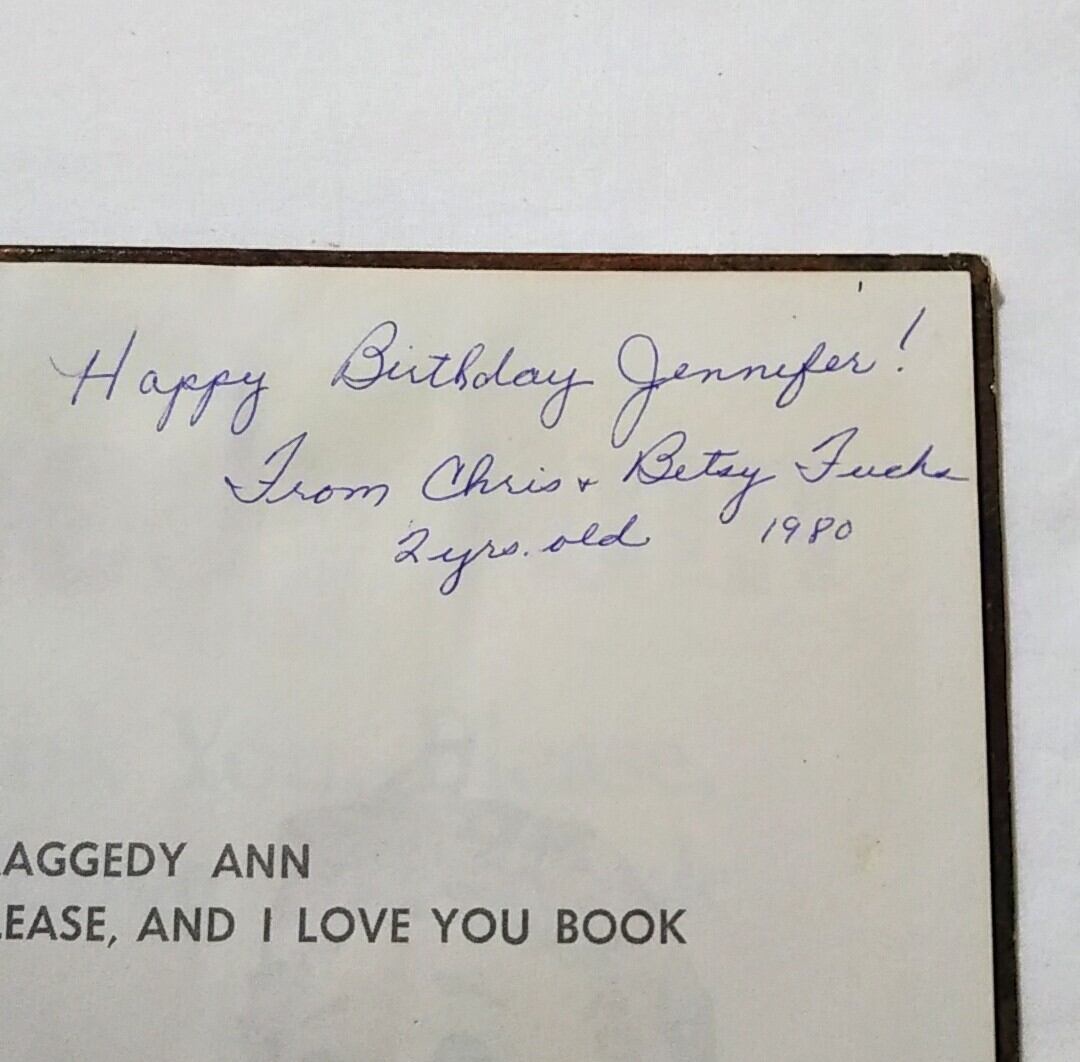 Happy Birthday Jennifer!
From Chris & Betsy Fuchs
2 yrs. old 1980
AGGEDY ANN
LEASE, AND I LOVE YOU BOOK